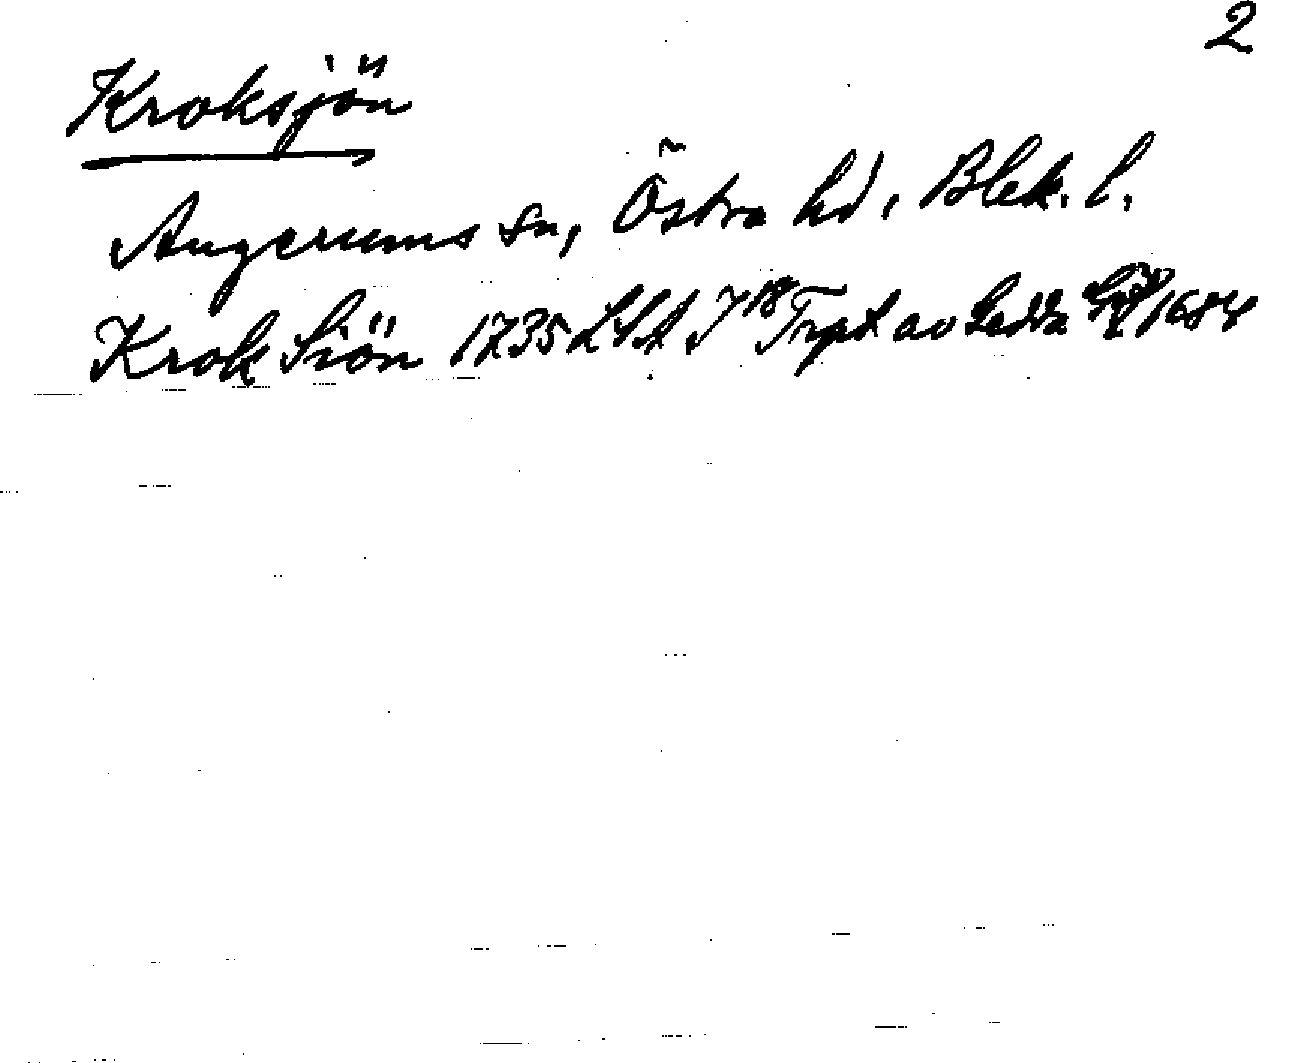 2
Kroksjön
Augerums sn, Östra hd, Blek. l.
Krok Siön 1735 LSA J 18 Trpt av Gedda 1684